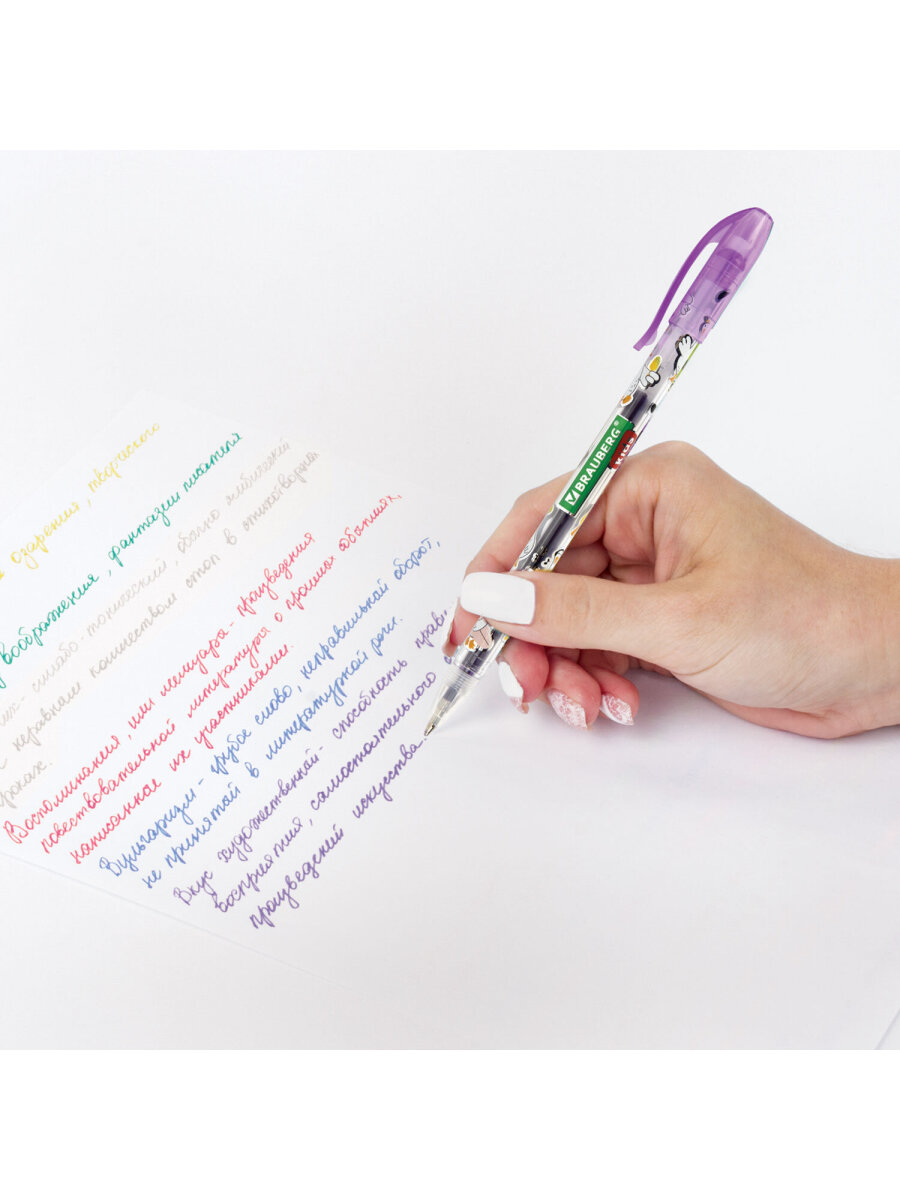 озарения, творческого
воображения, фантазии писателя
силлабо-тонический, обычно ямбический
с неравным количеством стоп в стихотворных
строках.
Воспоминания, или мемуары - произведения
повествовательной литературы о прошлых событиях,
написанное их участниками.
Вульгаризм - грубое слово, неправильный оборот,
не принятой в литературной речи.
Вкус художественный - способность прави
восприятия, самостоятельного
произведений искусства.
BRAUBERG
KIDS